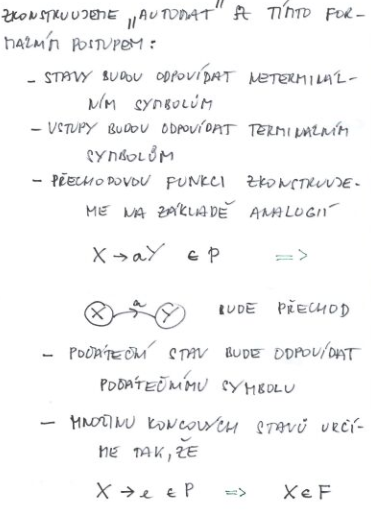 ZKONSTRUUJEME „AUTOMAT" TÍMTO FOR-
MÁLNÍM POSTUPEM:
- STAVY BUDOU ODPOVÍDAT NETERMINÁL-
NÍM SYMBOLŮM
- VSTUPY BUDOU ODPOVÍDAT TERMINÁLNÍM
SYMBOLŮM
- PŘECHODOVOU FUNKCI ZKONSTRUUJE-
ME NA ZÁKLADĚ ANALOGIÍ
X → aY ∈ P =>
X a Y BUDE PŘECHOD
- POČÁTEČNÍ STAV BUDE ODPOVÍDAT
POČÁTEČNÍMU SYMBOLU
- MNOŽINU KONCOVÝCH STAVŮ URČÍ-
ME TAK, ŽE
X → e ∈ P => X ∈ F